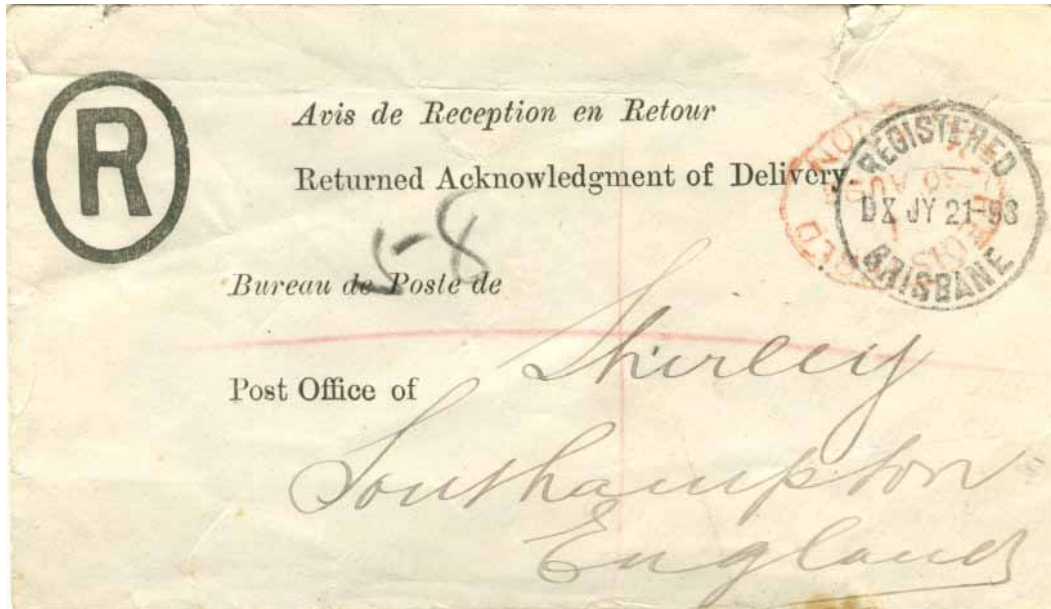 R
Avis de Reception en Retour
Returned Acknowledgment of Delivery.
REGISTERED
DX JY 21-98
BRISBANE
58
Bureau de Poste de
Post Office of
Shirley
Southampton
England